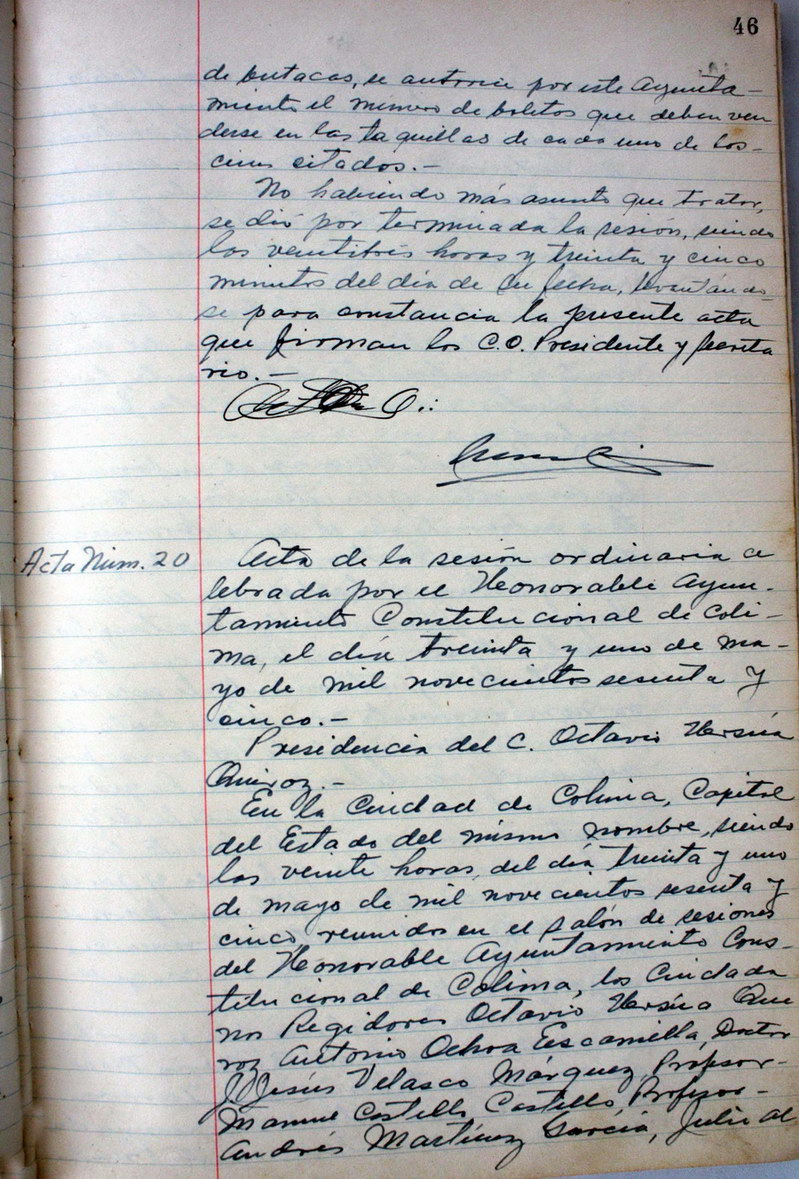 46
de butacas, se autorice por este Ayunta-
miento el número de boletos que deban ven
derse en las taquillas de cada uno de los-
cines citados.-
No habiendo más asunto que tratar,
se dió por terminada la sesión, siendo
las veintitrés horas y treinta y cinco
minutos del día de su fecha, levantándo-
se para constancia la presente acta
que firman los C.C. Presidente y Secreta
rio.-
Acta Núm. 20
Acta de la sesión ordinaria ce
lebrada por el Honorable Ayun-
tamiento Constitucional de Coli-
ma, el día treinta y uno de ma-
yo de mil novecientos sesenta y
cinco.-
Presidencia del C. Octavio Ursúa
Quiroz.-
En la Ciudad de Colima, Capital
del Estado del mismo nombre, siendo
las veinte horas del día treinta y uno
de mayo de mil novecientos sesenta y
cinco reunidos en el salón de sesiones
del Honorable Ayuntamiento Cons-
titucional de Colima, los Ciudada
nos Regidores Octavio Ursúa Qui
roz Antonio Ochoa Escamilla, Doctor
J. Jesús Velasco Márquez, Profesor-
Manuel Castell Castillo, Profesor-
Andrés Martínez García, Julio Al